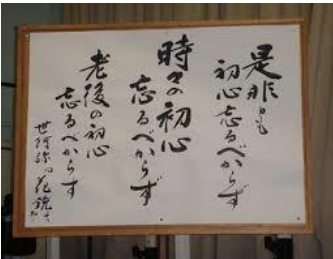 是非とも
初心忘るべからず
時々の初心
忘るべからず
老後の初心
忘るべからず
世阿弥の花鏡